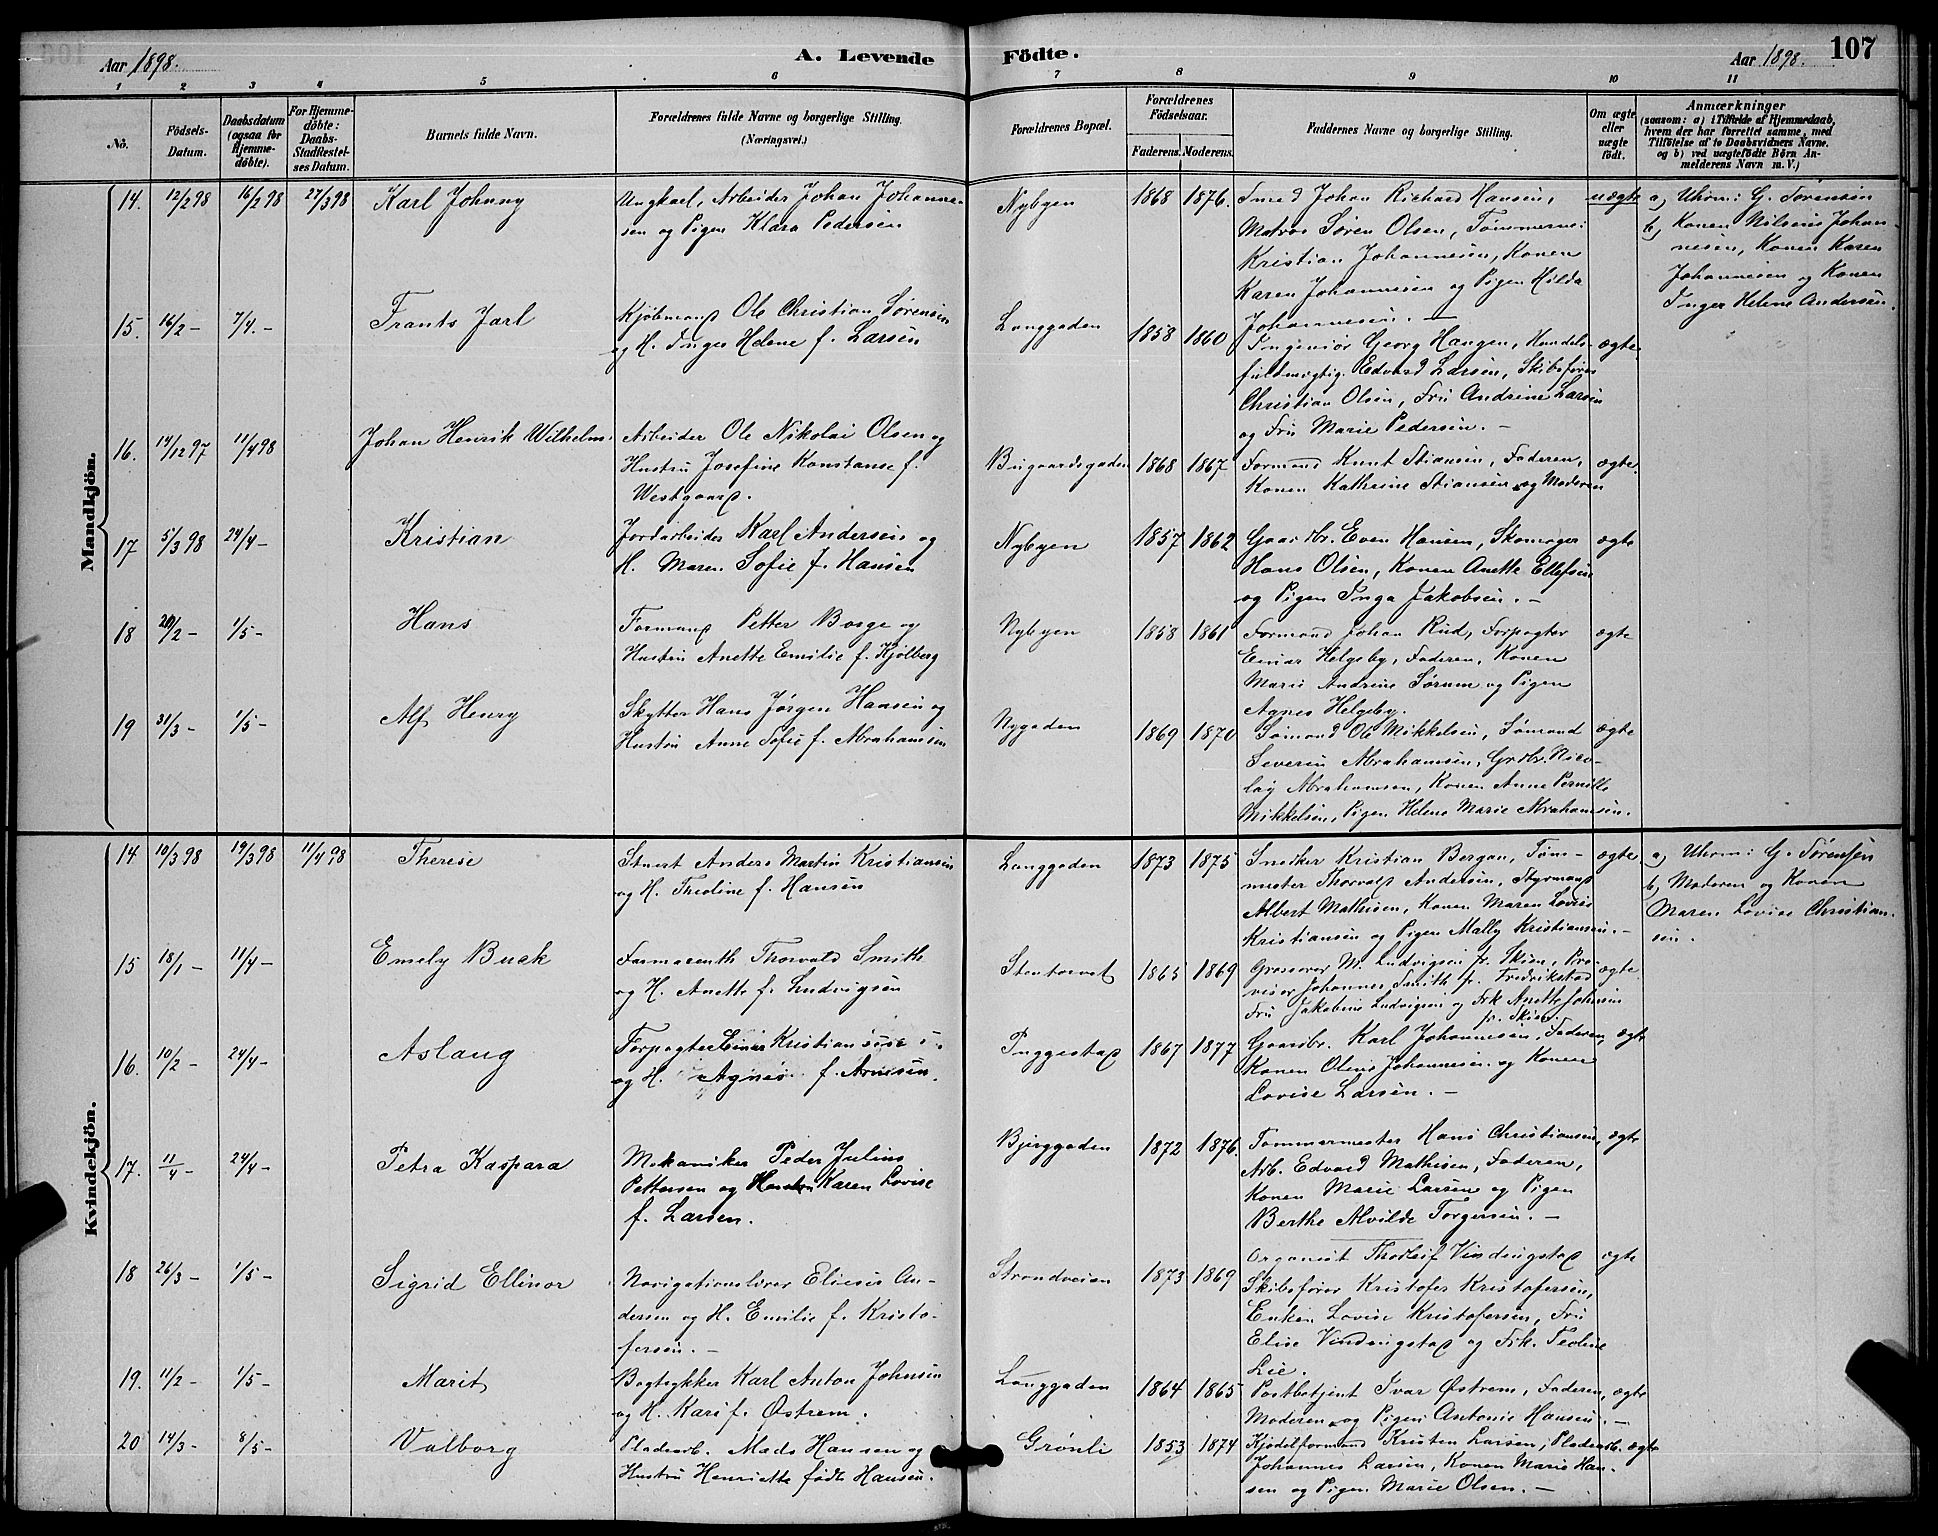 Aar 1898.
A. Levende Födte.
Aar 1898. 107
1 2 3 4 5 6 7 8 9 10 11
No.
Födsels-Datum.
Daabsdatum (ogsaa for Hjemmedöbte).
For Hjemmedöbte: Daabs-Stadfæstelses Datum.
Barnets fulde Navn.
Forældrenes fulde Navne og borgerlige Stilling. (Næringsvei.)
Forældrenes Bopæl.
Forældrenes Födselsaar.
Faderens. Moderens.
Faddernes Navne og borgerlige Stilling.
Om ægte eller uægte födt.
Anmærkninger
(saasom: a) i Tilfælde af Hjemmedaab, hvem der har forrettet samme, med Tilföielse af to Daabsvidners Navne. og b) ved uægtefödte Börn Anmelderens Navn m. V.)
Mandkjön.
14. 12/2 98 16/2 98 27/3 98 Karl Johnny
Ungkael, Arbeider Johan Johanne-
sen og Pigen Klara Pedersen
Nybyen 1868 1876.
Smed Johan Richard Hansen,
Matros Søren Olsen, Tømmerm:
Kristian Johannesen, Konen
Karen Johannesen og Pigen Hilda
Johannesen. —
uægte
a) Uhrm: G. Sørensen
b) Konen Nilsine Johan-
nesen, Konen Karen
Johannesen og Konen
Inger Helene Andersen.
15. 16/2 - 7/4. - Frants Jarl
Kjøbmand Ole Christian Sørensen
og H. Inger Helene f. Larsen
Langgaden 1858 1860
Ingeniør Georg Haugen, Handels-
fuldmægtig Edvard Larsen, Skibsfører
Christian Olsen, Fru Andrine Larsen
og Fru Marie Pedersen. —
ægte
16. 14/12 97 11/4 98 Johan Henrik Wilhelm.
Arbeider Ole Nikolai Olsen og
Hustru Josefine Konstanse f.
Westgaard.
Bugaardsgaden 1868 1867
Formand Knut Stiansen, Faderen,
Konen Kathrine Stiansen og Moderen
ægte.
17 5/3 98 24/4 - Kristian
Jordarbeider Karl Andersen og
H. Maren Sofie f. Hansen
Nybyen 1857 1862
Gaardbr. Even Hansen, Skomager
Hans Olsen, Konen Anette Ellefsen
og Pigen Inga Jakobsen. —
ægte
18 20/2 - 1/5 - Hans
Formand Petter Borge og
Hustru Anette Emilie f. Kjølberg
Nybyen 1858 1861
Formand Johan Rud, Forpagter
Einar Helgeby, Faderen, Konen
Marie Andrine Sørum og Pigen
Agnes Helgeby.
ægte
19 31/3 - 1/5 - Alf Henry
Skytter Hans Jørgen Hansen og
Hustru Anne Sofie f. Abrahamsen
Nygaden 1869 1870
Sømand Ole Mikkelsen, Sømand
Severin Abrahamsen, Grdbr. Nico-
lay Abrahamsen, Konen Anne Pernille
Mikkelsen, Pigen Helene Marie Abrahamsen.
ægte
Kvindekjön.
14 10/3 98 19/3 98 11/4 98 Therese
Stuert Anders Martin Kristiansen
og H. Theoline f. Hansen
Langgaden 1873 1875
Snedker Kristian Bergan, Tøm-
mester Thorvald Andersen, Styrmand
Albert Mathisen, Konen Maren Lovise
Kristiansen og Pigen Mally Kristiansen. —
ægte.
a) Uhrm: G. Sørensen
b) Moderen og Konen
Maren Lovise Christian-
sen.
15 18/1 - 11/4 - Emely Buck
Farmaceuth Thorvald Smith
og H. Anette f. Ludvigsen
Stentorvet 1865 1869
Grosserer M. Ludvigsen fr. Skien, Pro-
visor Johannes Smith fr. Fredrikstad
Fru Jakobine Ludvigsen og Frk Anette Johnsen
fr. Skien.
ægte
16. 10/2 - 24/4 - Aslaug
Forpagter Einar Kristiansen
og H. Agnes f. Arnesen.
Tuggestad 1867 1877
Gaardbr. Karl Johannesen, Faderen,
Konen Oline Johannesen og Konen
Lovise Larsen. —
ægte
17. 11/4 - 24/4 - Petra Kaspara
Mekaniker Peder Julius
Pettersen og Hustru Karen Lovise
f. Larsen.
Bjerggaden 1872 1876.
Tømmermester Hans Christiansen,
Arb. Edvard Mathisen, Faderen,
Konen Marie Larsen og Pigen
Berthe Alvilde Torgersen. —
ægte
18 26/3 - 1/5 - Sigrid Ellinor
Navigationslærer Elieser An-
dersen og H. Emilie f. Kristo-
fersen. —
Strandveien 1873 1869
Organist Thorleif Vindingstad
Skibsfører Kristofer Kristofersen,
Enken Lovise Kristofersen, Fru
Elise Vindingstad og Frk. Teoline
Lie.
ægte
19. 11/2 - 1/5 - Marit
Bogtrykker Karl Anton Johnsen
og H. Kari f. Østrem.
Langgaden 1864 1865
Postbetjent Ivar Østrem, Faderen,
Moderen og Pigen Antonie Hansen. —
ægte
20 14/3 - 8/5 - Valborg
Pladearb. Mads Hansen og
Hustru Henriette født Hansen.
Grønli 1853 1874
Kjedelformand Kristen Larsen, Pladearb.
Johannes Larsen, Konen Marie Han-
sen og Pigen Marie Olsen. —
ægte